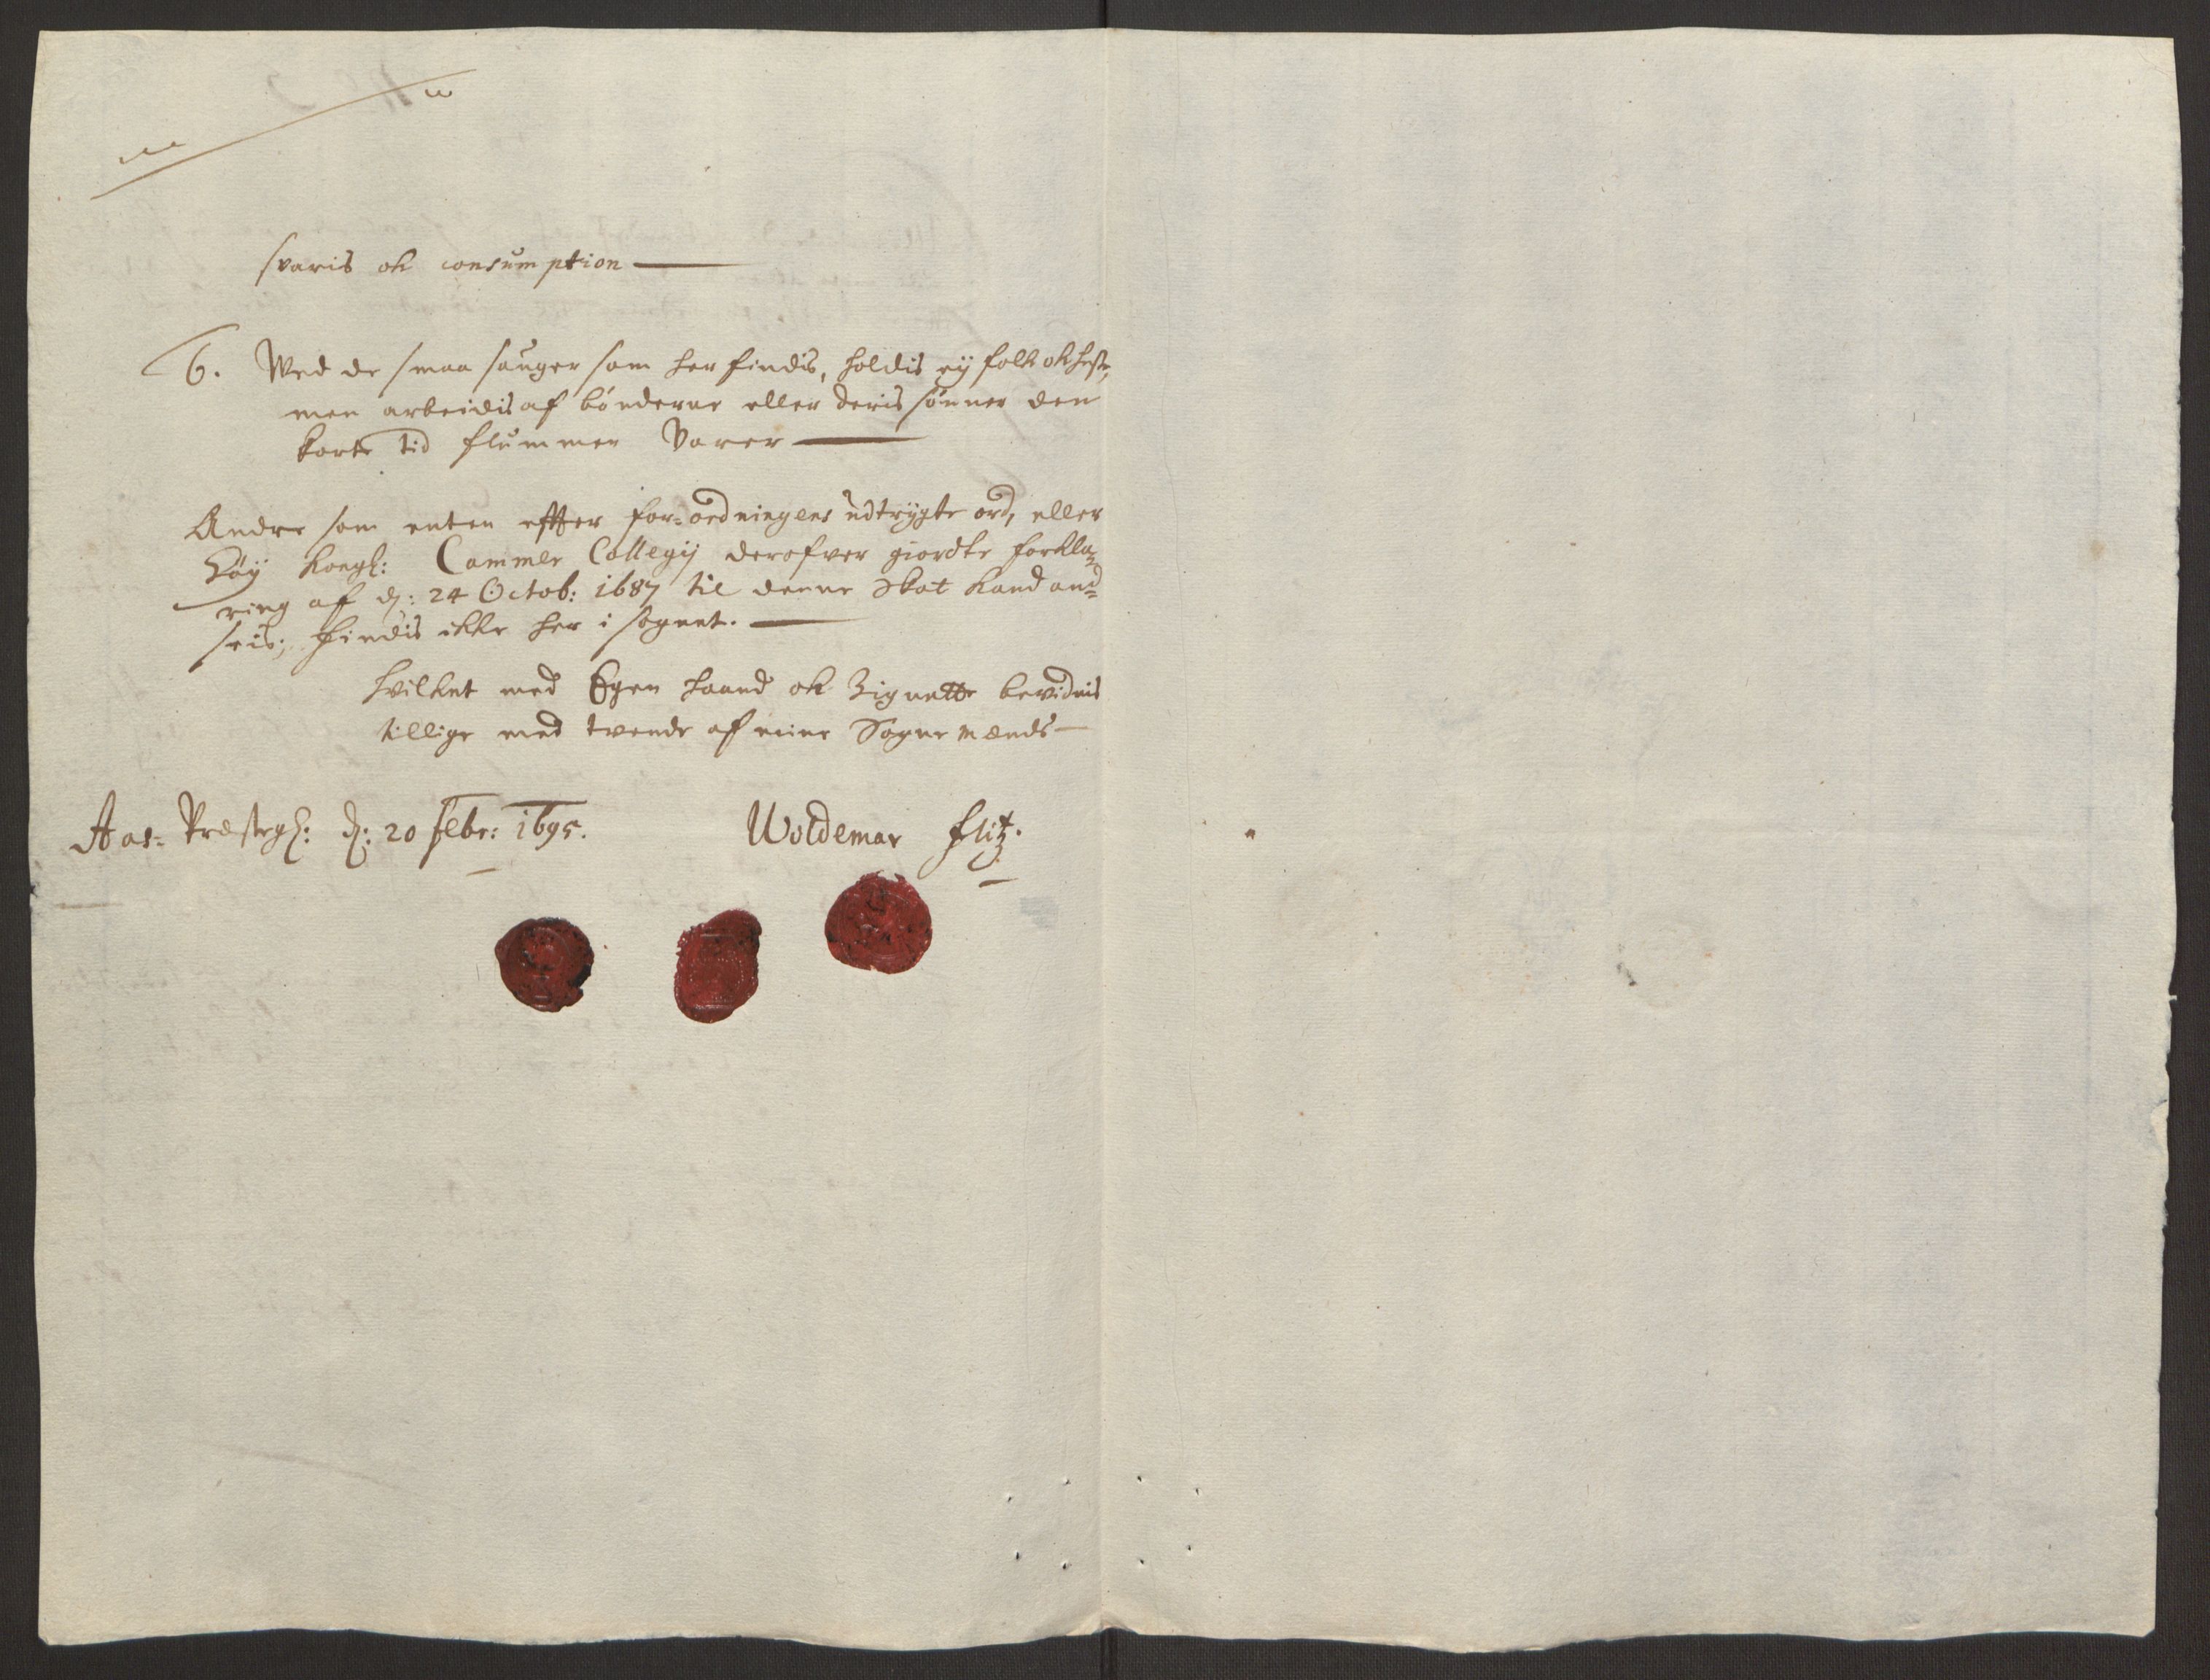 svaris ok consumption
6. Wed de smaa sauger som her findis, holdis ey folk ok heste,
men arbeidis af bönderne eller deris sönner den
korte tid flummen varer
Andre som enten effter for=ordningens udtrygte ord, eller
Höy kongl: Cammer Collegij derofver giordte forkla=
ring af d: 24 Octob: 1687 til denne Skat kand an=
seis; findis ikke her i sognet.
hvilket med Egen haand ok Zignette bevidnis
tillige med tvende af mine Sogne mænds
Aas= Præstegl: d: 20 febr: 1695. Woldemar flitz.